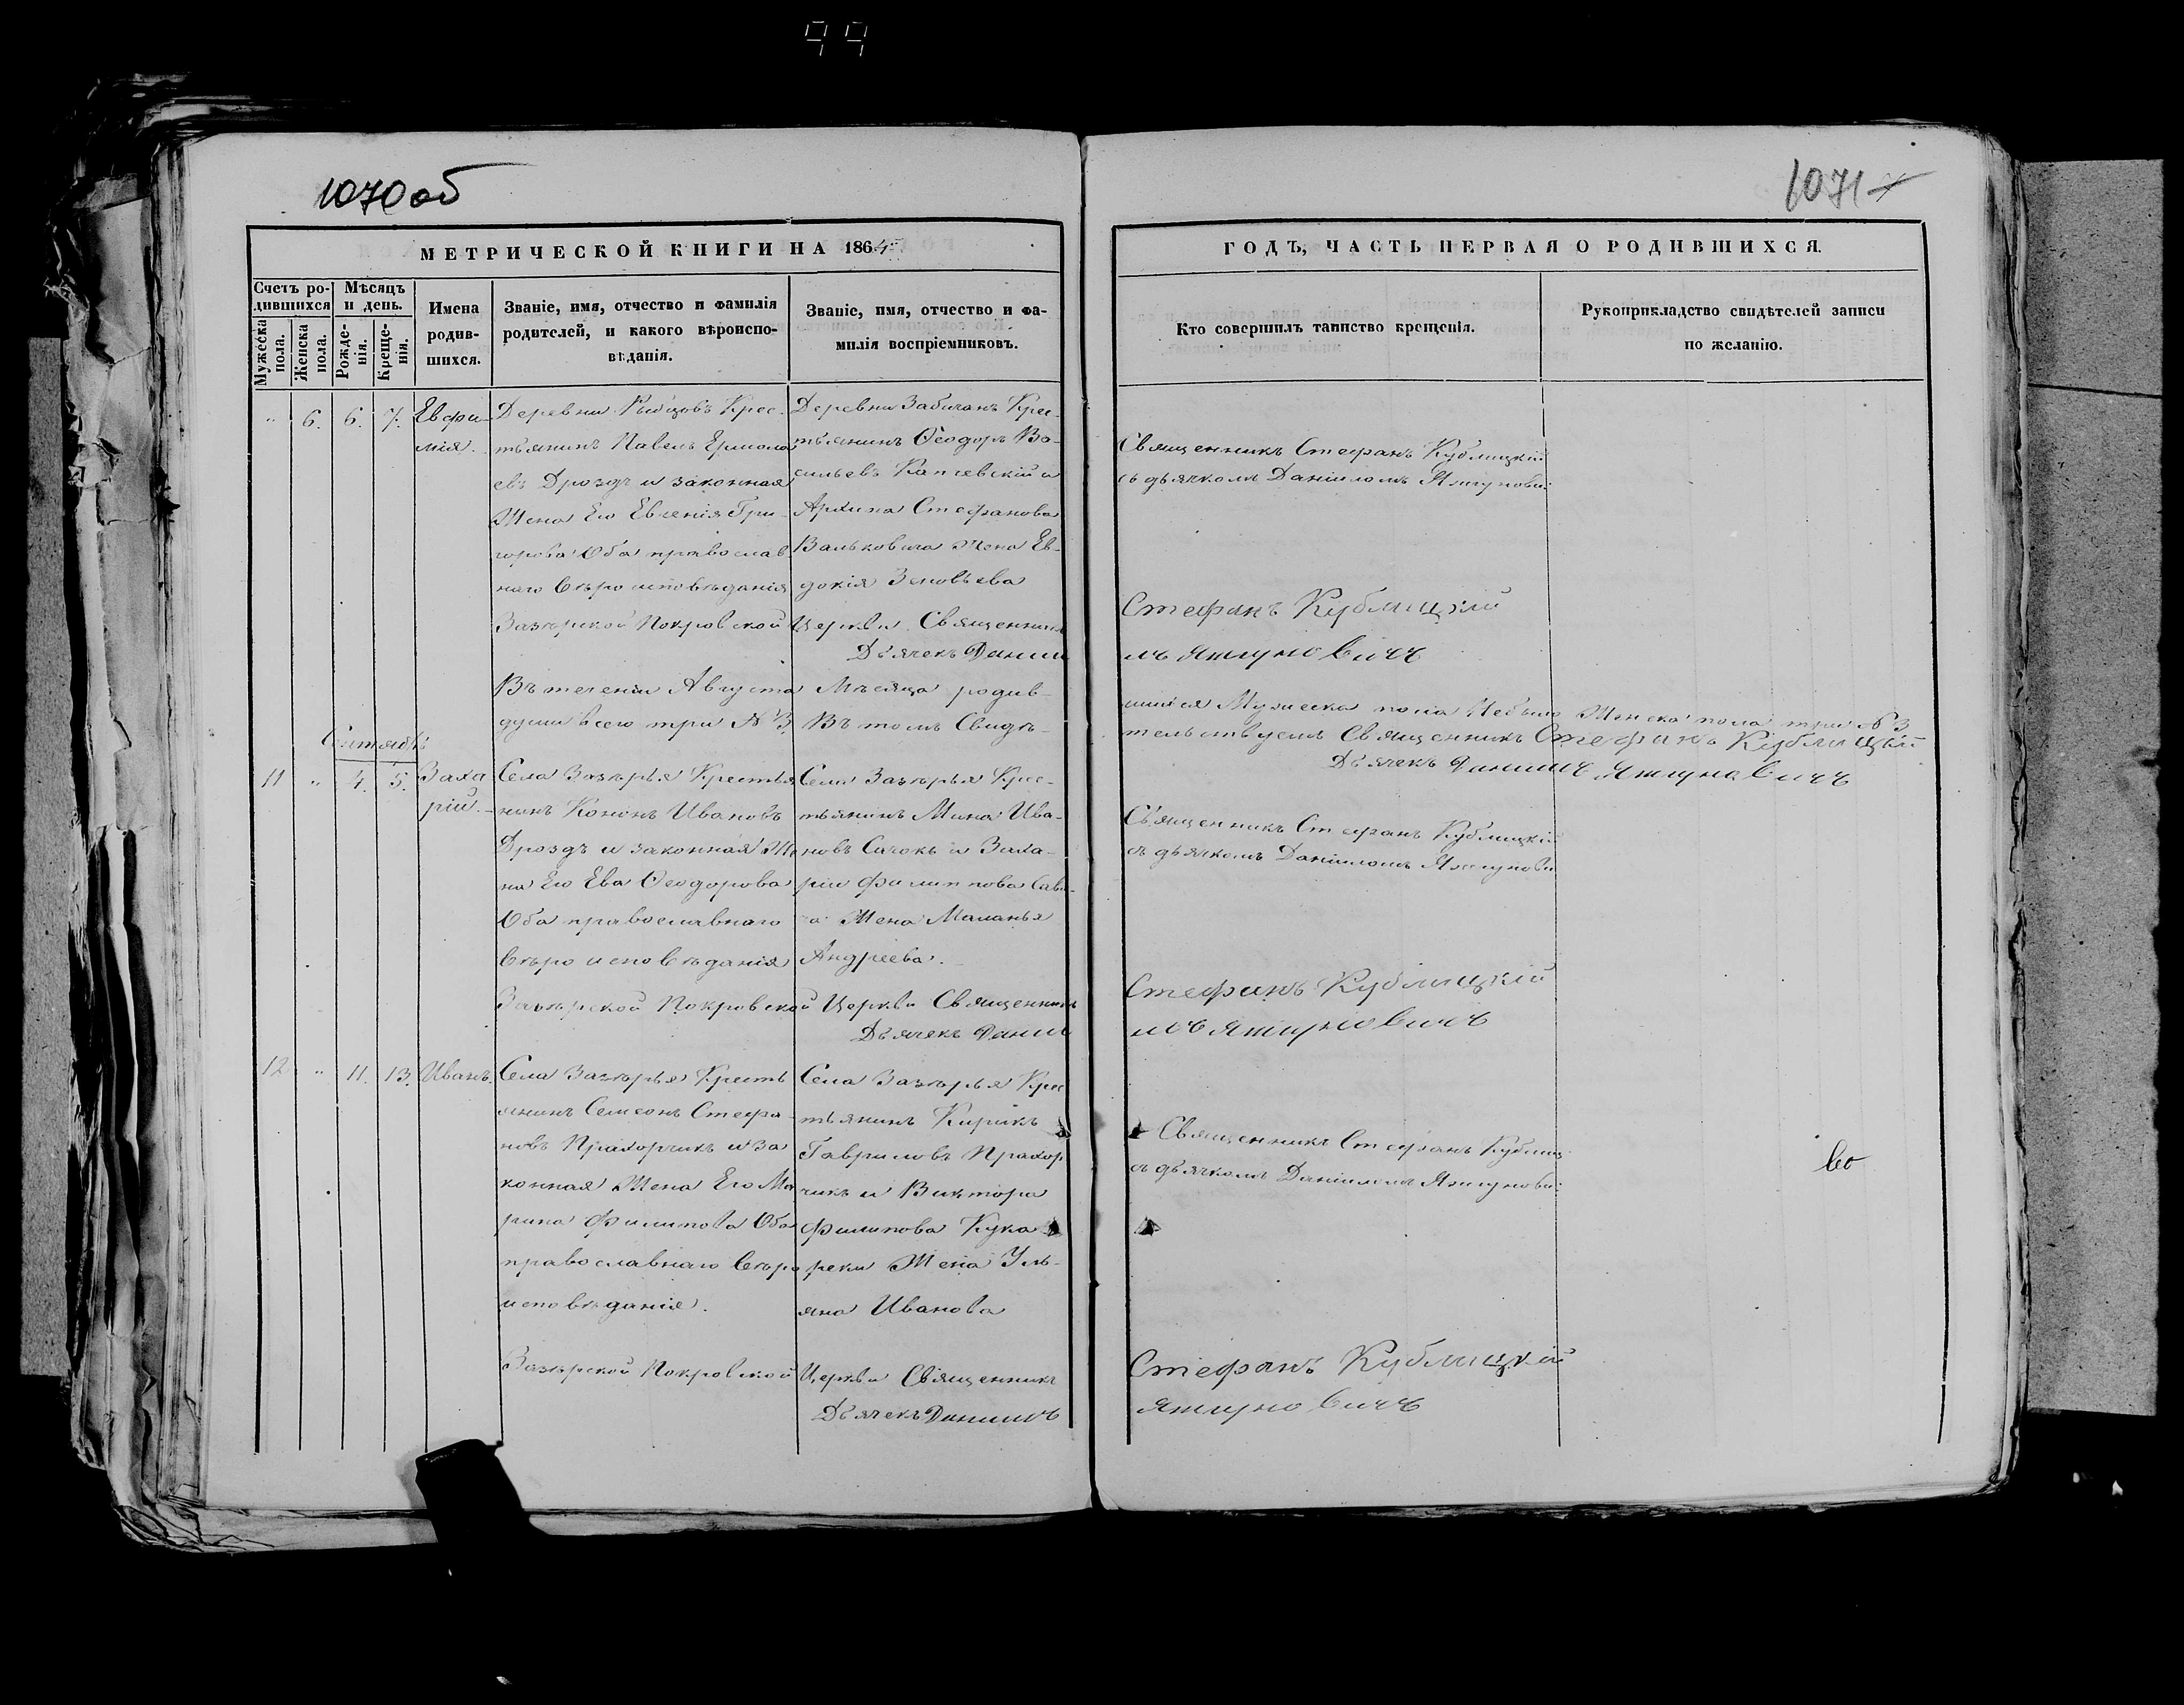 1070 об
1071
МЕТРИЧЕСКОЙ КНИГИ НА 1864
ГОДЪ, ЧАСТЬ ПЕРВАЯ О РОДИВШИХСЯ.
Счетъ ро-
дившихся
Мужеска пола.
Женска пола.
Мѣсяцъ
и день.
Рожде-
нія.
Креще-
нія.
Имена
родив-
шихся.
Званіе, имя, отчество и фамилія
родителей, и какого вѣроиспо-
вѣданія.
Званіе, имя, отчество и фа-
милія воспріемниковъ.
Кто совершилъ таинство крещенія.
Рукоприкладство свидѣтелей записи
по желанію.
" 6. 6. 7.
Евфи-
мія.
Деревни Крес-
тьянинъ Павелъ Ермола
евъ Дроздъ и законная
Жена Его Евгенія Гри-
горова Оба православ
наго вѣроисповѣданія
Деревни Забичанъ Крес-
тьянинъ Ѳеодоръ Ва-
сильевъ Капчевскій и
Архипа Стефанова
Вальковича Жена Ев-
докія Зеновьева
Священникъ Стефанъ Кублицкій
съ дьячкомъ Даніиломъ Яхнунови:
Зазѣрской Покровской Церкви Священникъ Стефанъ Кублицкій
Дьячекъ Даниилъ Яхнуновичъ
Въ теченіи Августа Мѣсяца родив-
шихся Мужеска пола Небыло Женска пола три №3
души всего три №3, Въ томъ Свидѣ-
тельствуемъ Священникъ Стефанъ Кублицкій
Дьячекъ Даниилъ Яхнуновичъ
Сентябрь
11 " 4. 5.
Заха
рій.
Села Зазѣрья Крестья
нинъ Кононъ Ивановъ
Дроздъ и законная Же
на Его Ева Ѳеодорова
Оба православнаго
вѣроисповѣданія
Села Зазѣрья Крес-
тьянинъ Мина Ива-
новъ Сачокъ и Заха-
рія Филиппова Сав-
Жена Маланья
Андреева.
Священникъ Стефанъ Кублицкій
съ дьячкомъ Даніиломъ Яхнунови
Зазѣрской Покровской Церкви Священникъ Стефанъ Кублицкій
Дьячекъ Даниилъ Яхнуновичъ
12 " 11. 13.
Иванъ.
Села Зазѣрья Кресть
янинъ Семеонъ Стефа-
новъ Прахорчикъ и за
конная Жена Его Ма
рина Филипова Оба
православнаго вѣро
исповѣданія.
Села Зазѣрья Крес
тьянинъ Кирикъ
Гавриловъ Прахор
чикъ и Виктора
Филипова Кука
реки Жена Уль-
яна Иванова
Священникъ Стефанъ Кублиц
съ дьячкомъ Даніиломъ Яхнунови:
Зазѣрской Покровской Церкви Священникъ Стефанъ Кублицкій
Дьячекъ Даниилъ Яхнуновичъ